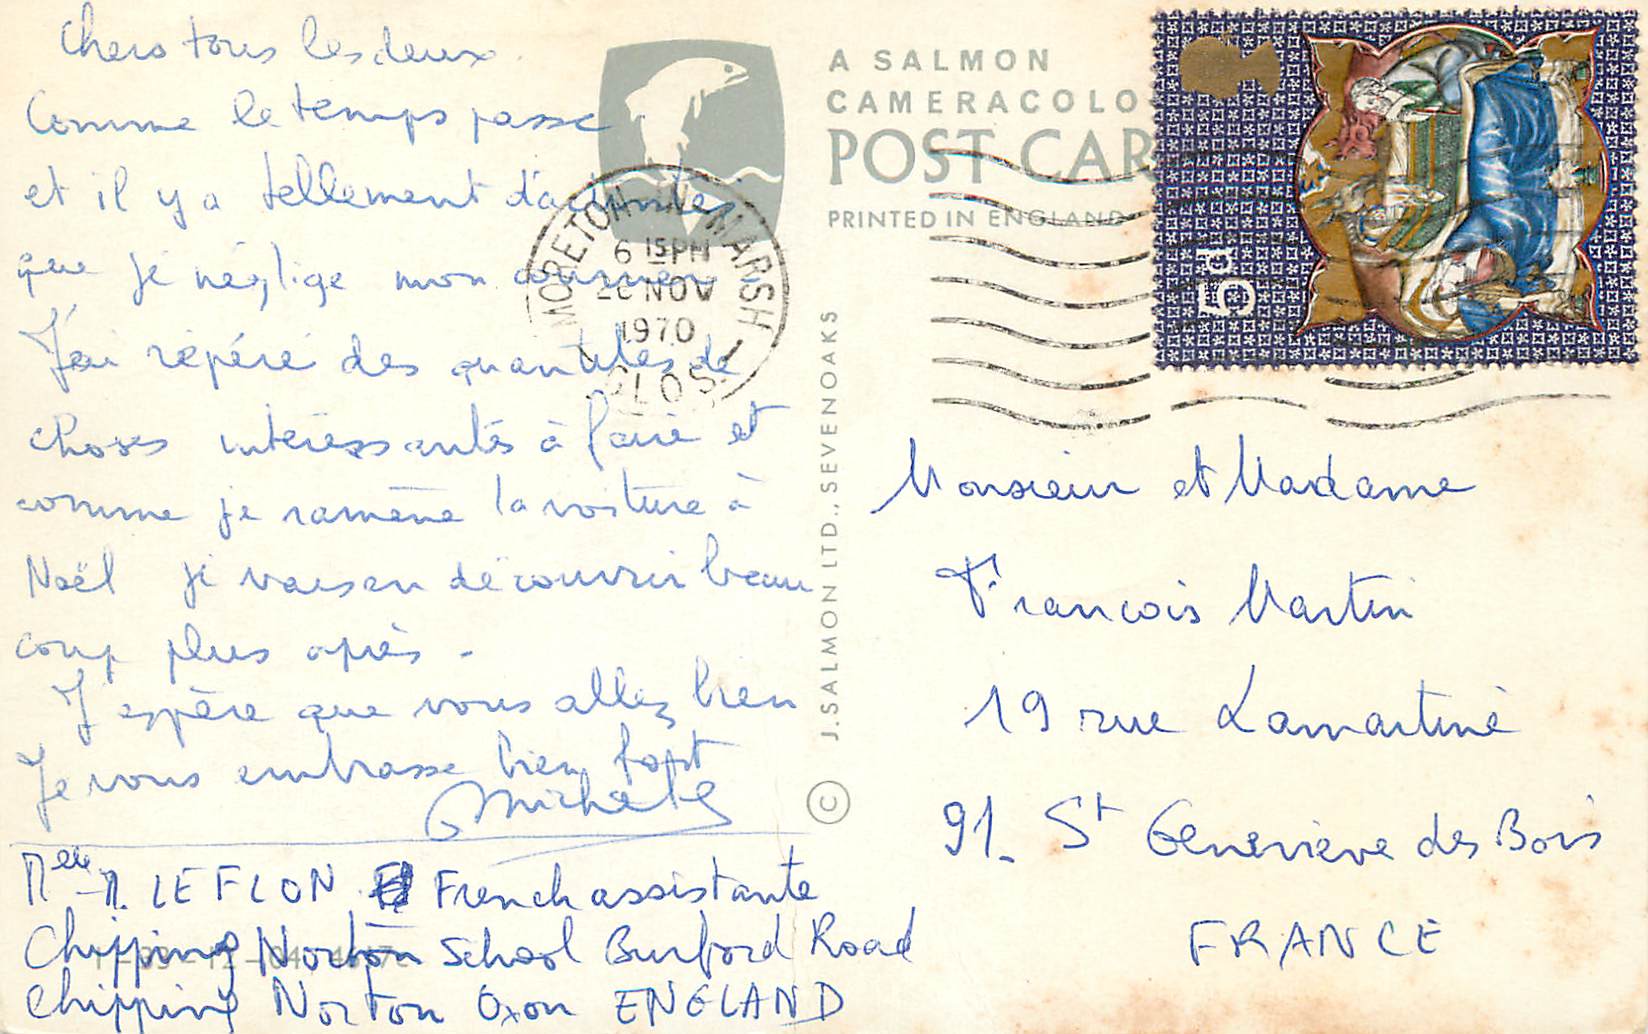 Chers tous les deux
Comme le temps passe
et il y a tellement d'activités
que je néglige mon courrier
J'ai répéré des quantités de
choses intéressantes à faire et
comme je ramène la voiture à
Noël je vais en découvrir beau
coup plus après.
J'espère que vous allez bien
Je vous embrasse bien fort
Michele
Melle M. LE FLON French assistante
Chipping Norton School Burford Road
Chipping Norton Oxon ENGLAND
A SALMON
CAMERACOLO
POST CAR
PRINTED IN ENGLAND
© J. SALMON LTD., SEVENOAKS
MORETON IN MARSH
6 15PM
NOV
1970
GLOS.
5d
Monsieur et Madame
Francois Martin
19 rue Lamartine
91_ St Genevieve des Bois
FRANCE